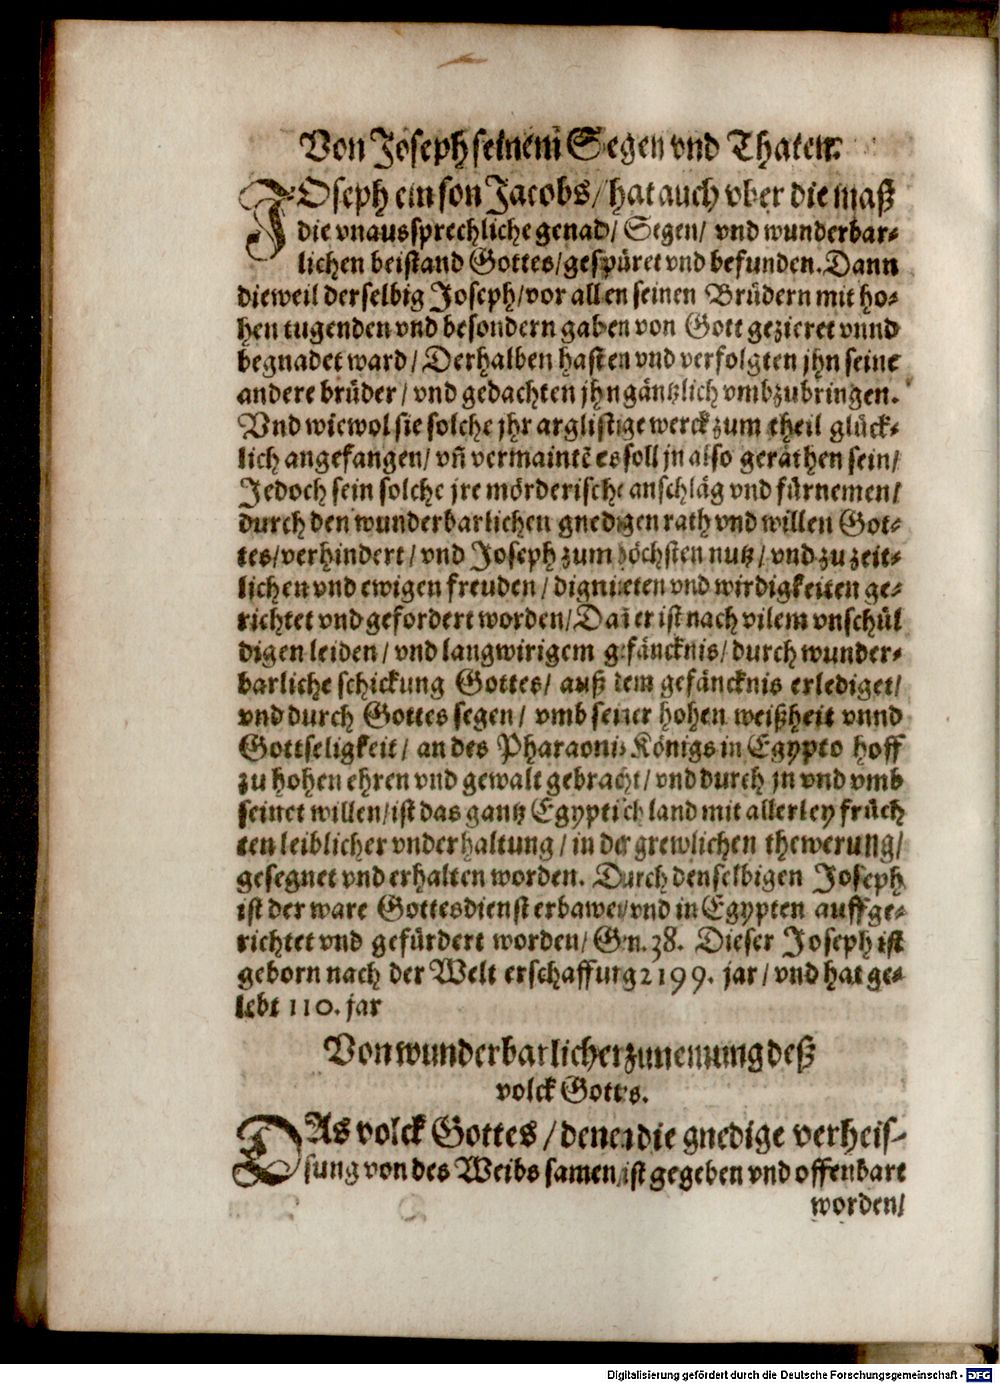 Von Joseph seinem Segen vnd Thaten.
JOseph ein son Jacobs/ hat auch vber die maß
die vnaussprechliche genad/ Segen/ vnd wunderbar-
lichen beistand Gottes/ gespüret vnd befunden. Dann
dieweil derselbig Joseph/ vor allen seinen Brüdern mit ho-
hen tugenden vnd besondern gaben von Gott gezieret vnnd
begnadet ward/ Derhalben hasten vnd verfolgten jhn seine
andere brüder/ vnd gedachten jhn gäntzlich vmbzubringen.
Vnd wiewol sie solche jhr arglistige werck zum theil glück-
lich angefangen/ vñ vermaintē es soll jn also geräthen sein/
Jedoch sein solche jre mörderische anschläg vnd fürnemen/
durch den wunderbarlichen gnedigen rath vnd willen Got-
tes/ verhindert/ vnd Joseph zum höchsten nutz/ vnd zu zeit-
lichen vnd ewigen freuden/ digniteten vnd wirdigkeiten ge-
richtet vnd gefordert worden/ Dañ er ist nach vilem vnschül
digen leiden/ vnd langwirigem gefäncknis/ durch wunder-
barliche schickung Gottes/ auß dem gefäncknis erlediget/
vnd durch Gottes segen/ vmb seiner hohen weißheit vnnd
Gottseligkeit/ an des Pharaonis Königs in Egypto hoff
zu hohen ehren vnd gewalt gebracht/ vnd durch jn vnd vmb
seinet willen/ ist das gantz Egyptisch land mit allerley früch
ten leiblicher vnderhaltung/ in der grewlichen thewerung/
gesegnet vnd erhalten worden. Durch denselbigen Joseph
ist der ware Gottesdienst erbawet/ vnd in Egypten auffge-
richtet vnd gefürdert worden/ Gen. 38. Dieser Joseph ist
geborn nach der Welt erschaffung 2199. jar/ vnd hat ge-
lebt 110. jar
Von wunderbarlicher zunemung deß
volck Gottes.
DAs volck Gottes/ denen die gnedige verheis-
sung von des Weibs samen/ ist gegeben vnd offenbart
worden/
Digitalisierung gefördert durch die Deutsche Forschungsgemeinschaft - DFG